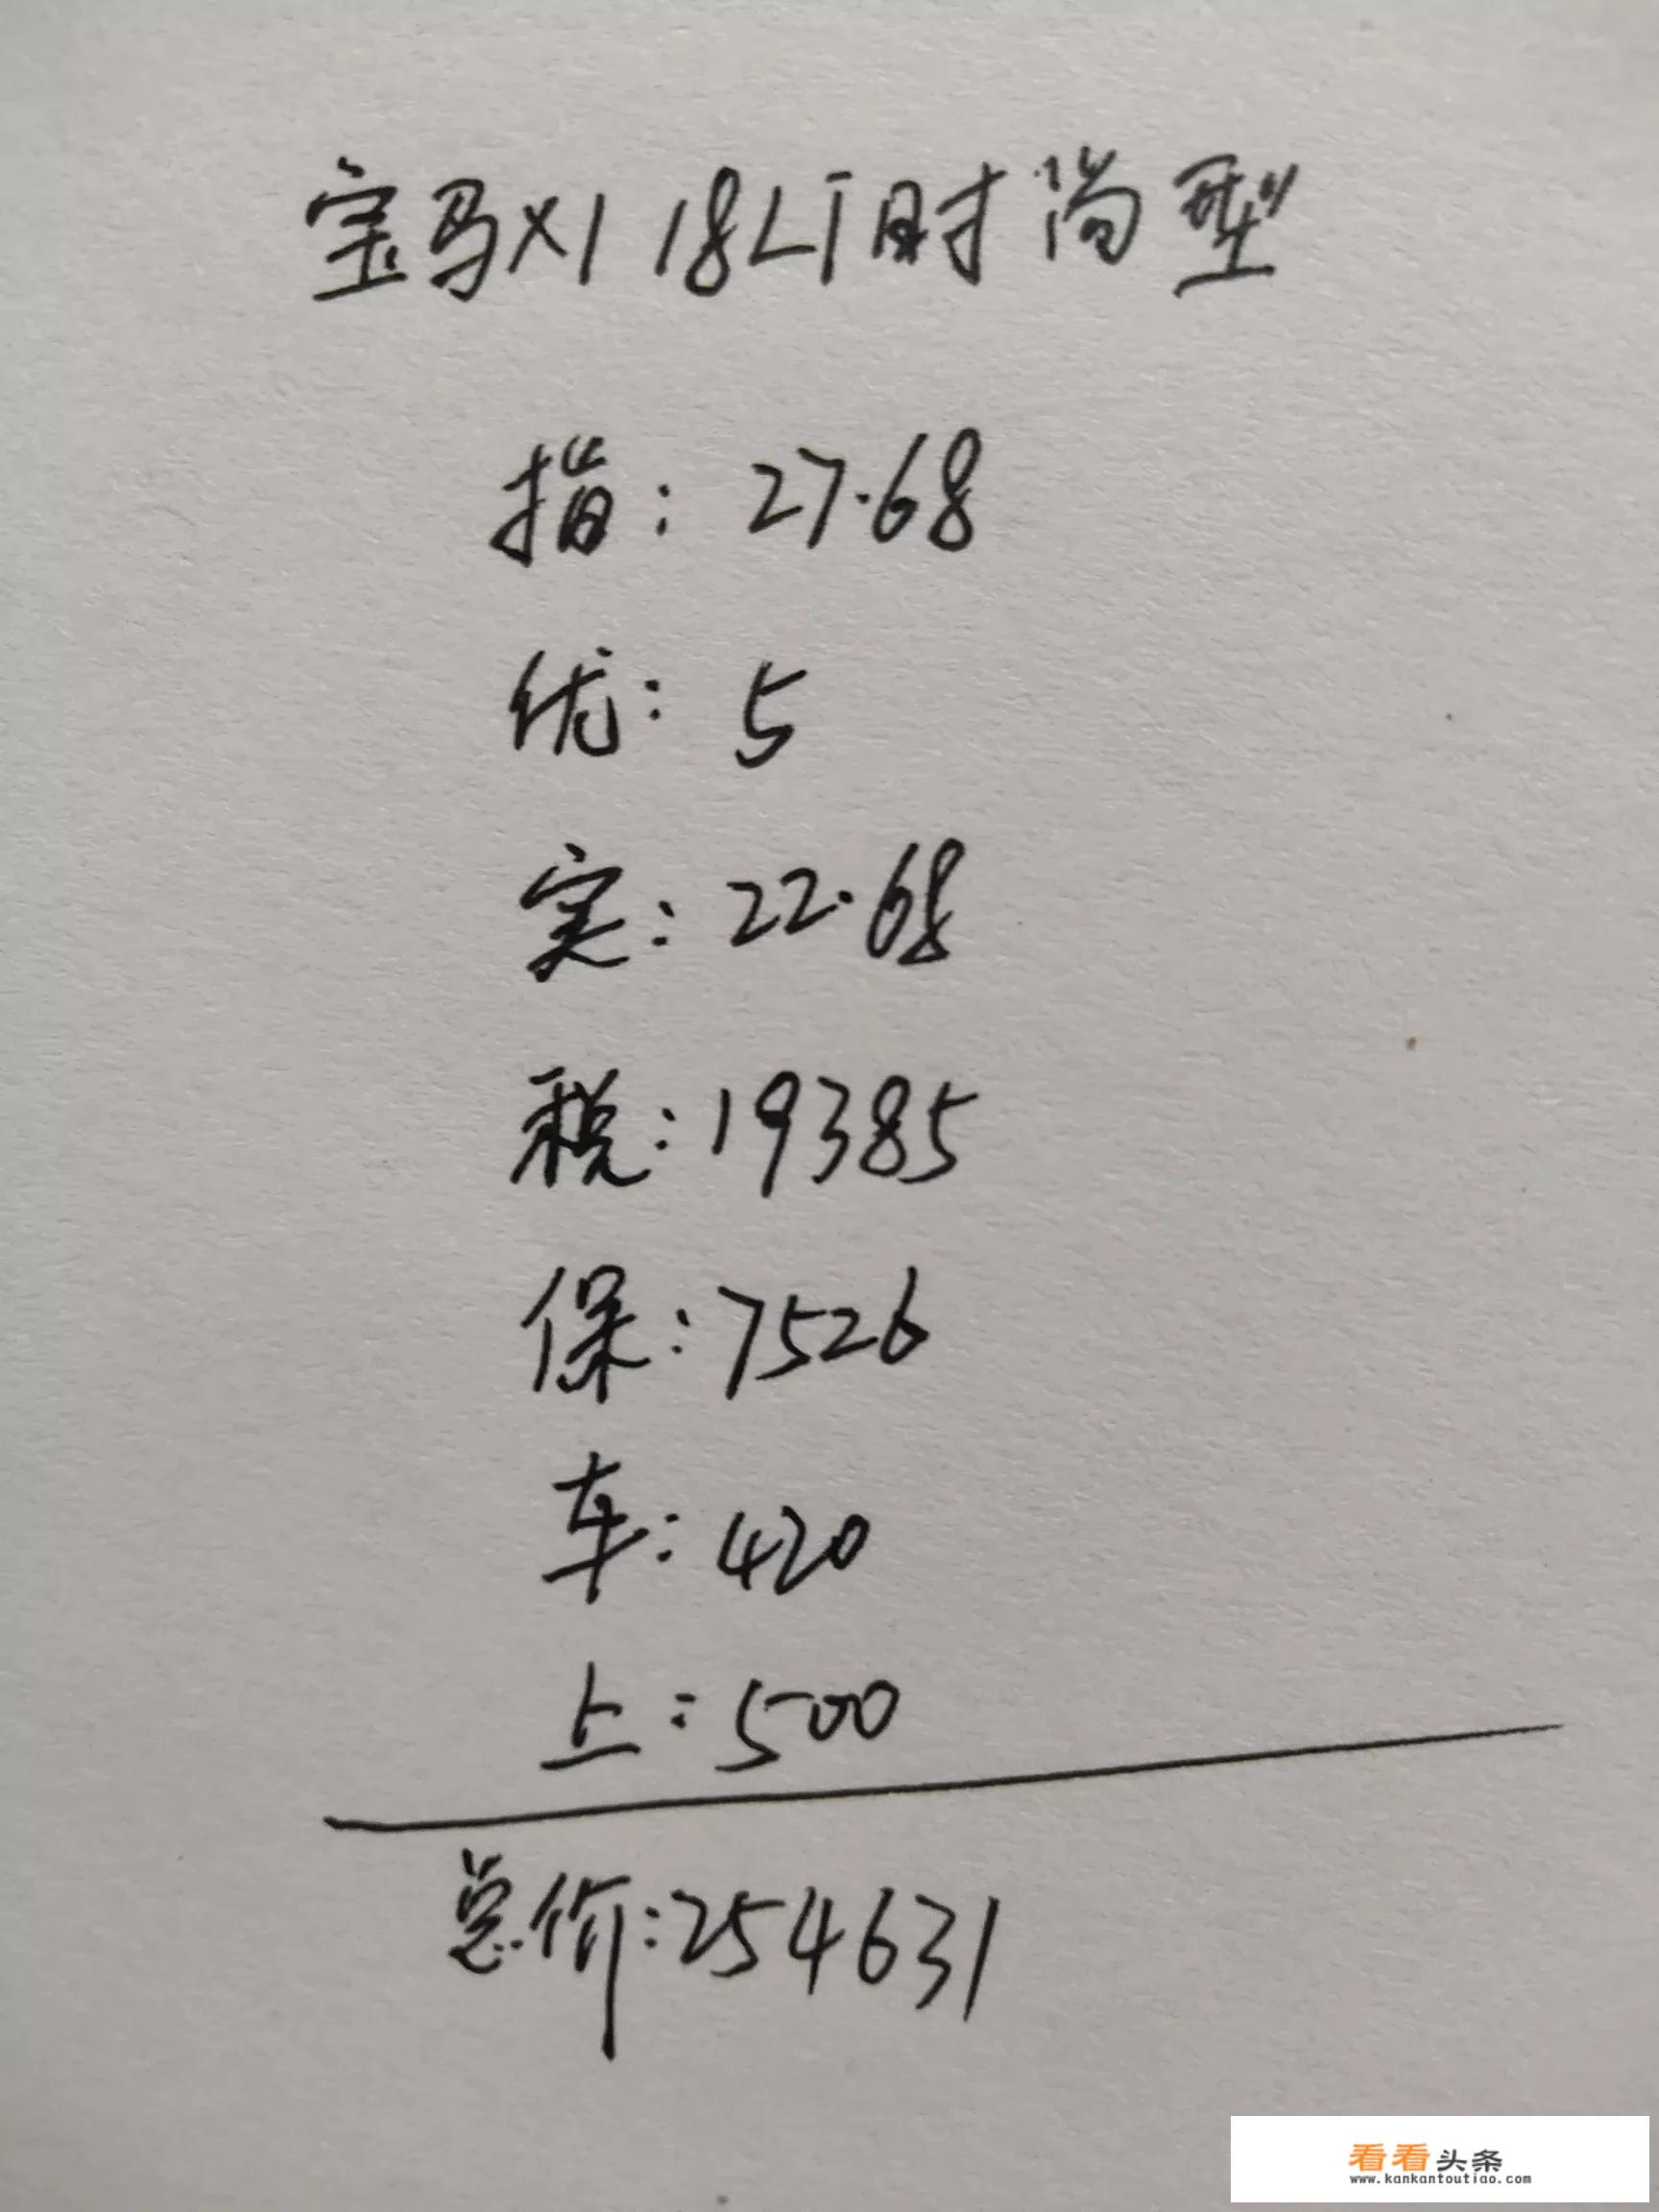 宝马X1 18Li时尚型
指: 27.68
优: 5
实: 22.68
税: 19385
保: 7526
车: 420
上: 500
总价: 254631
看看头条
www.kankantoutiao.com